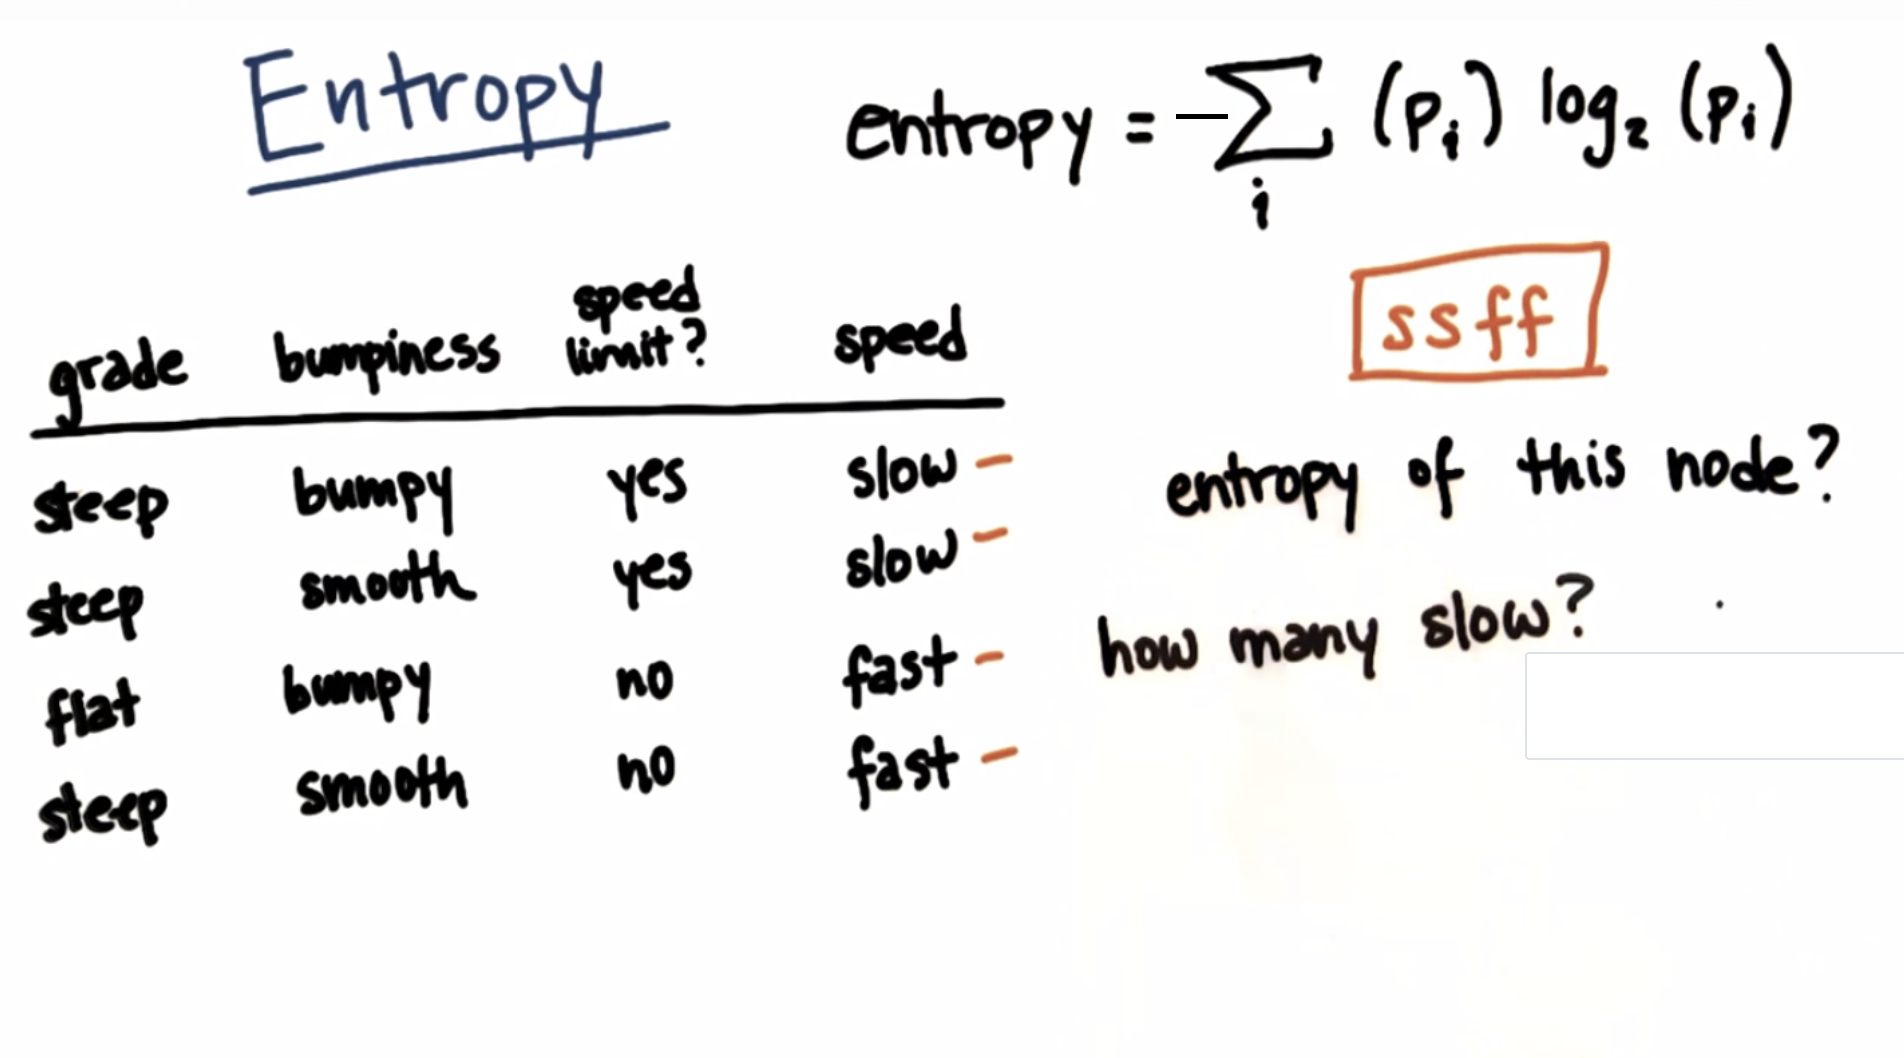 Entropy
entropy = −∑ᵢ (pᵢ) log₂ (pᵢ)
ssff
grade bumpiness speed limit? speed
steep bumpy yes slow –
steep smooth yes slow –
flat bumpy no fast –
steep smooth no fast –
entropy of this node?
how many slow?